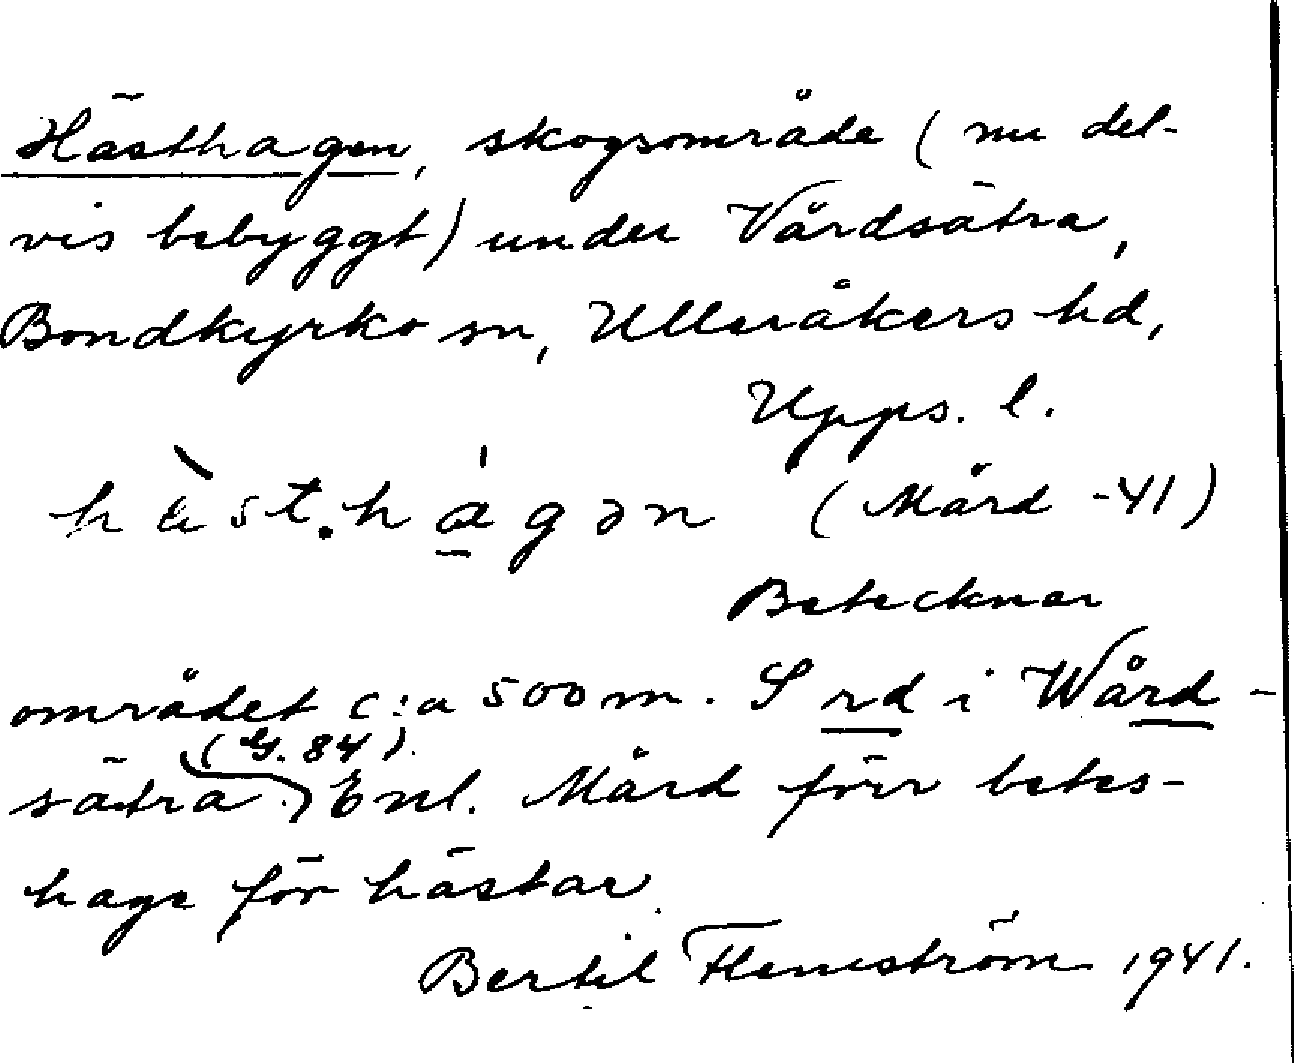 Hästhagen, skogsområde (nu del-
vis bebyggt) under Vårdsätra,
Bondkyrko sn, Ulleråkers hd,
Upps. l.
hὰst.hágən (Mård -41)
Betecknar
området c:a 500 m. S rd i Wård-
(G. 84).
sätra. Enl. Mård förr betes-
hage för hästar.
Bertil Flemström 1941.